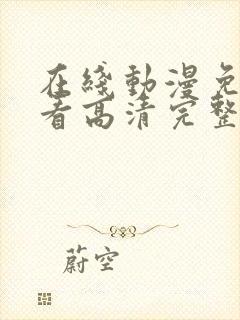 在綫動漫免
看高清完整
蔚空